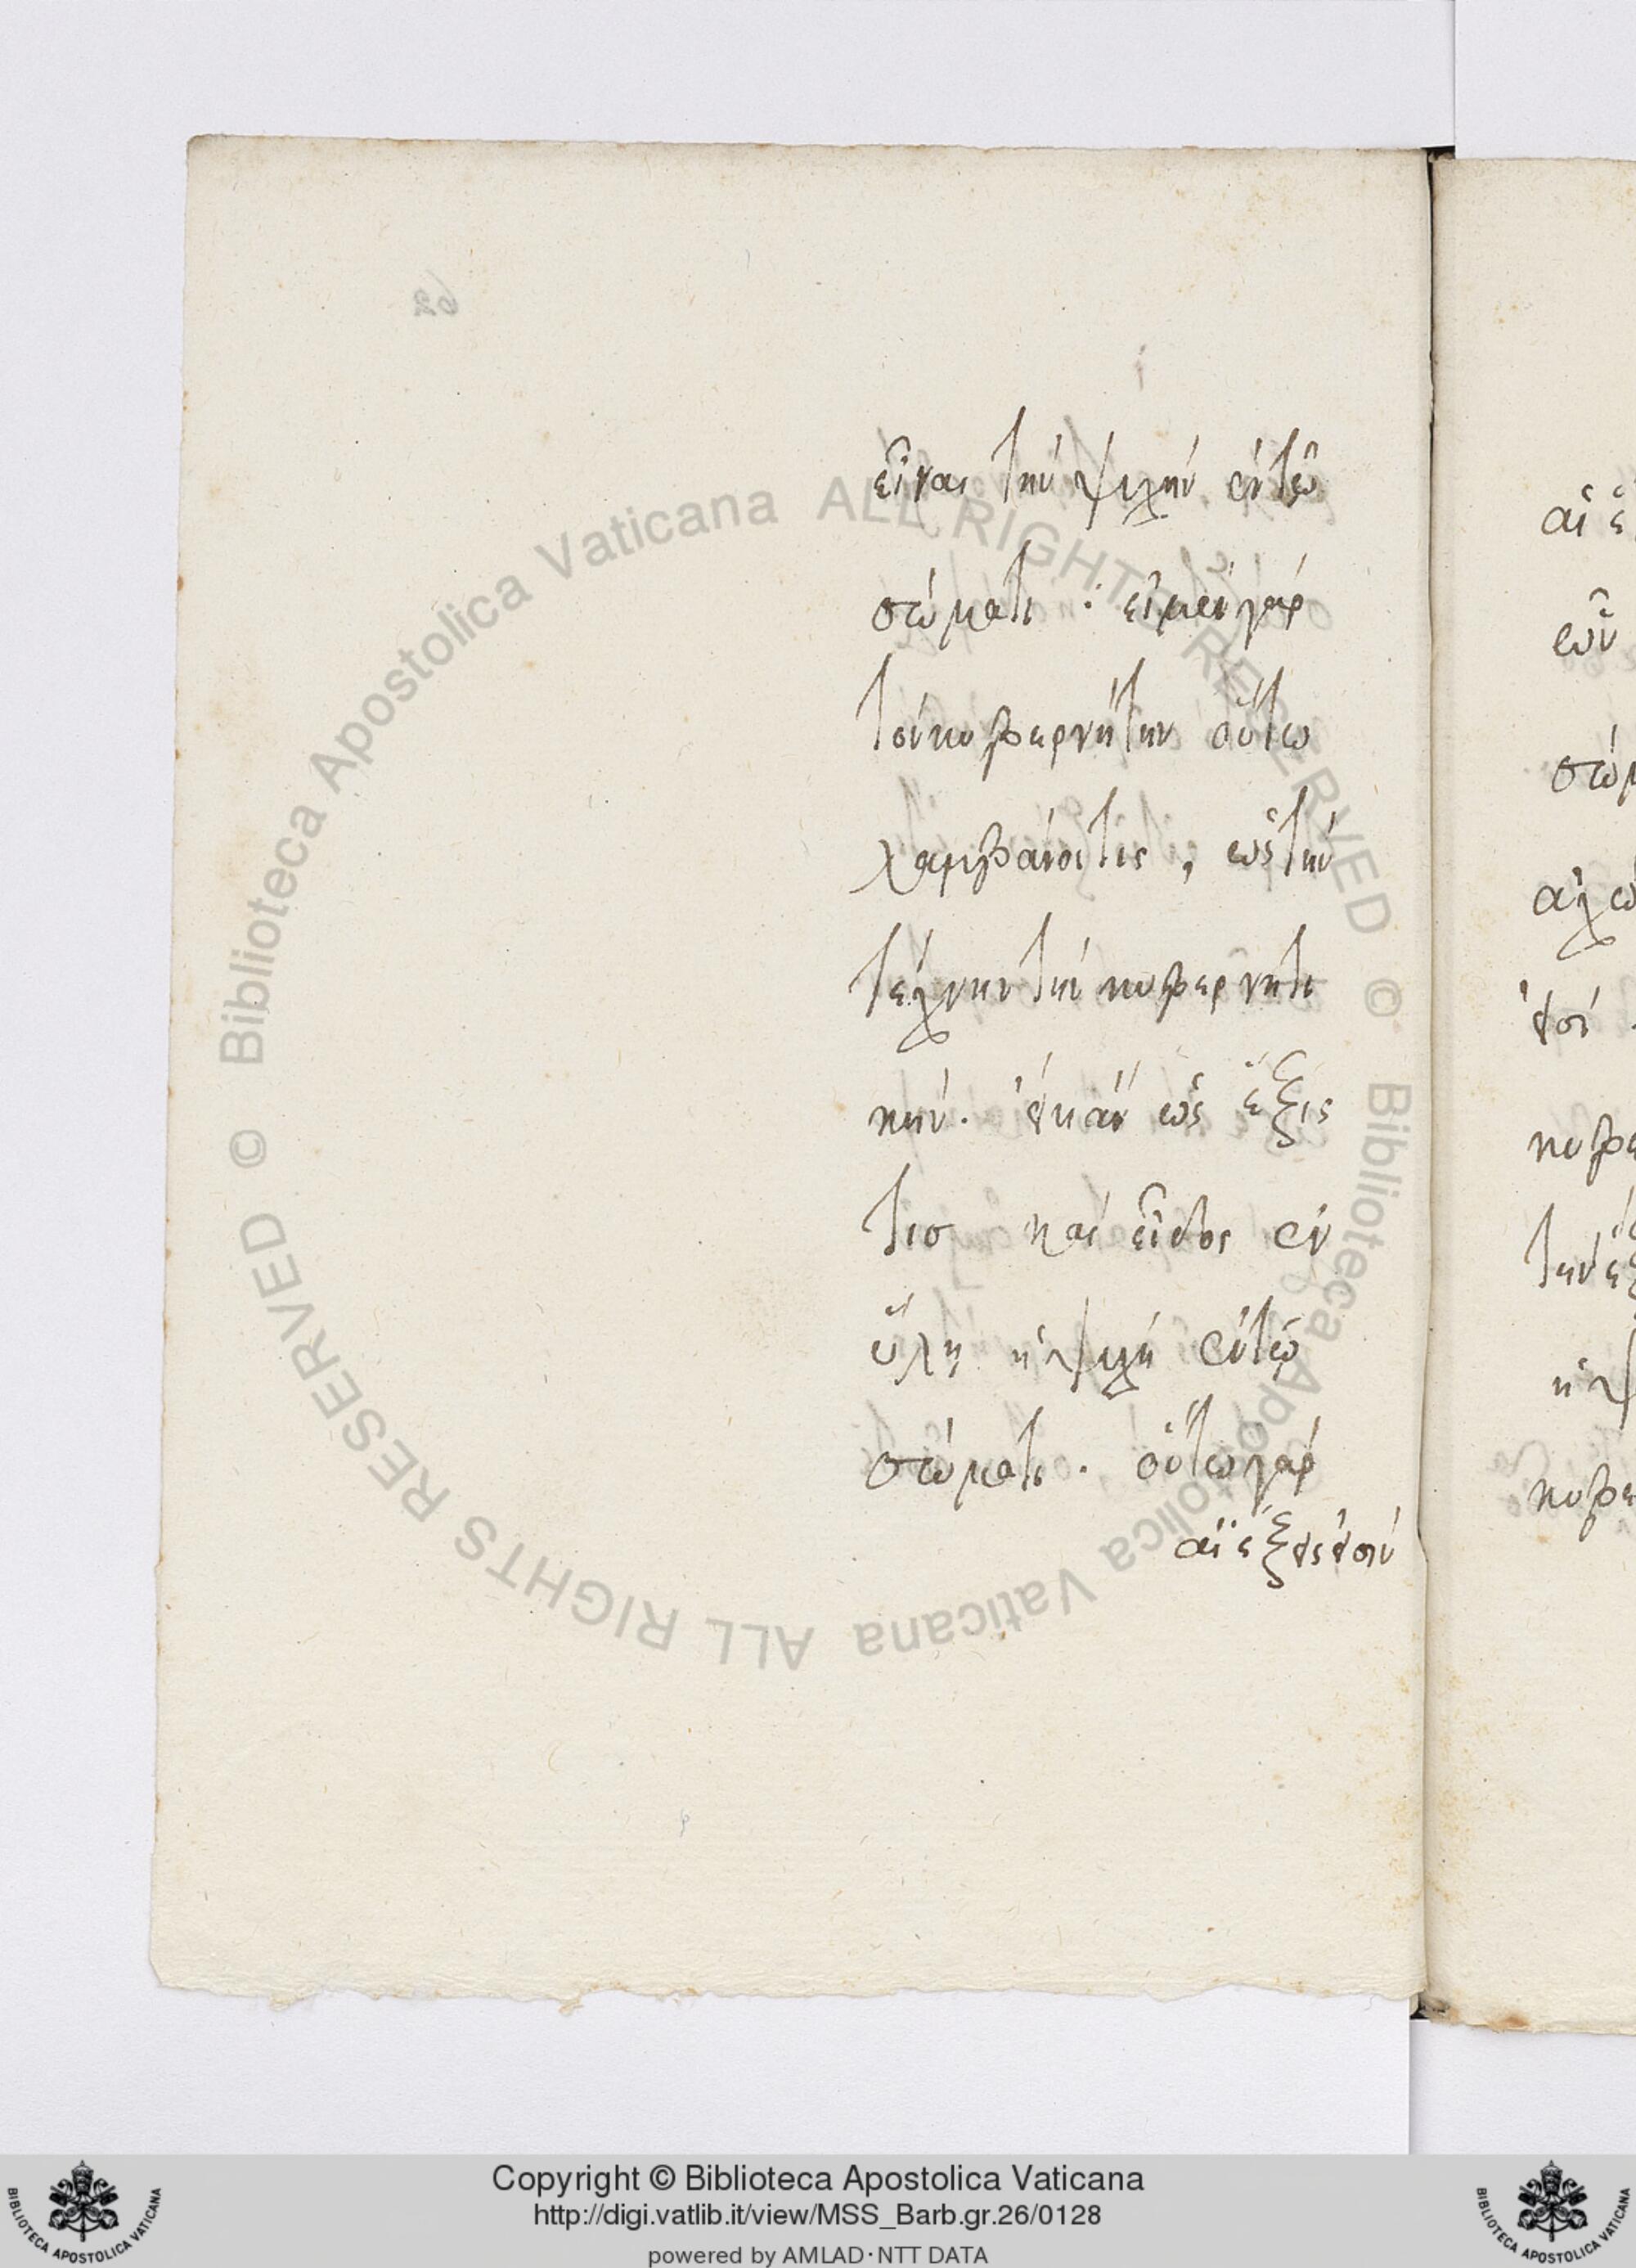 εἶναι τὴν ψυχὴν ἐν τῷ
σώματι · εἰ μὲν γὰρ
τὸν κυβερνήτην οὕτω
λαμβάνοι τις, ὡς τὴν
τέχνην τὴν κυβερνητι
κὴν. εἴη ἂν ὡς ἕξις
τισ καὶ εἶδος ἐν
ὕλῃ ἡ ψυχὴ ἐν τῷ
σώματι. οὕτω γὰρ
αἱ ἕξεις εἰσὶν
αἱ ἕ
ὧν
σώμ
κυβε
ἡ ψ
κυβε
Biblioteca Apostolica Vaticana ALL RIGHTS RESERVED © Biblioteca Apostolica Vaticana ALL RIGHTS RESERVED ©
Copyright © Biblioteca Apostolica Vaticana
http://digi.vatlib.it/view/MSS_Barb.gr.26/0128
powered by AMLAD·NTT DATA
BIBLIOTECA APOSTOLICA VATICANA
BIBLIOTECA APOSTOLICA VATICANA